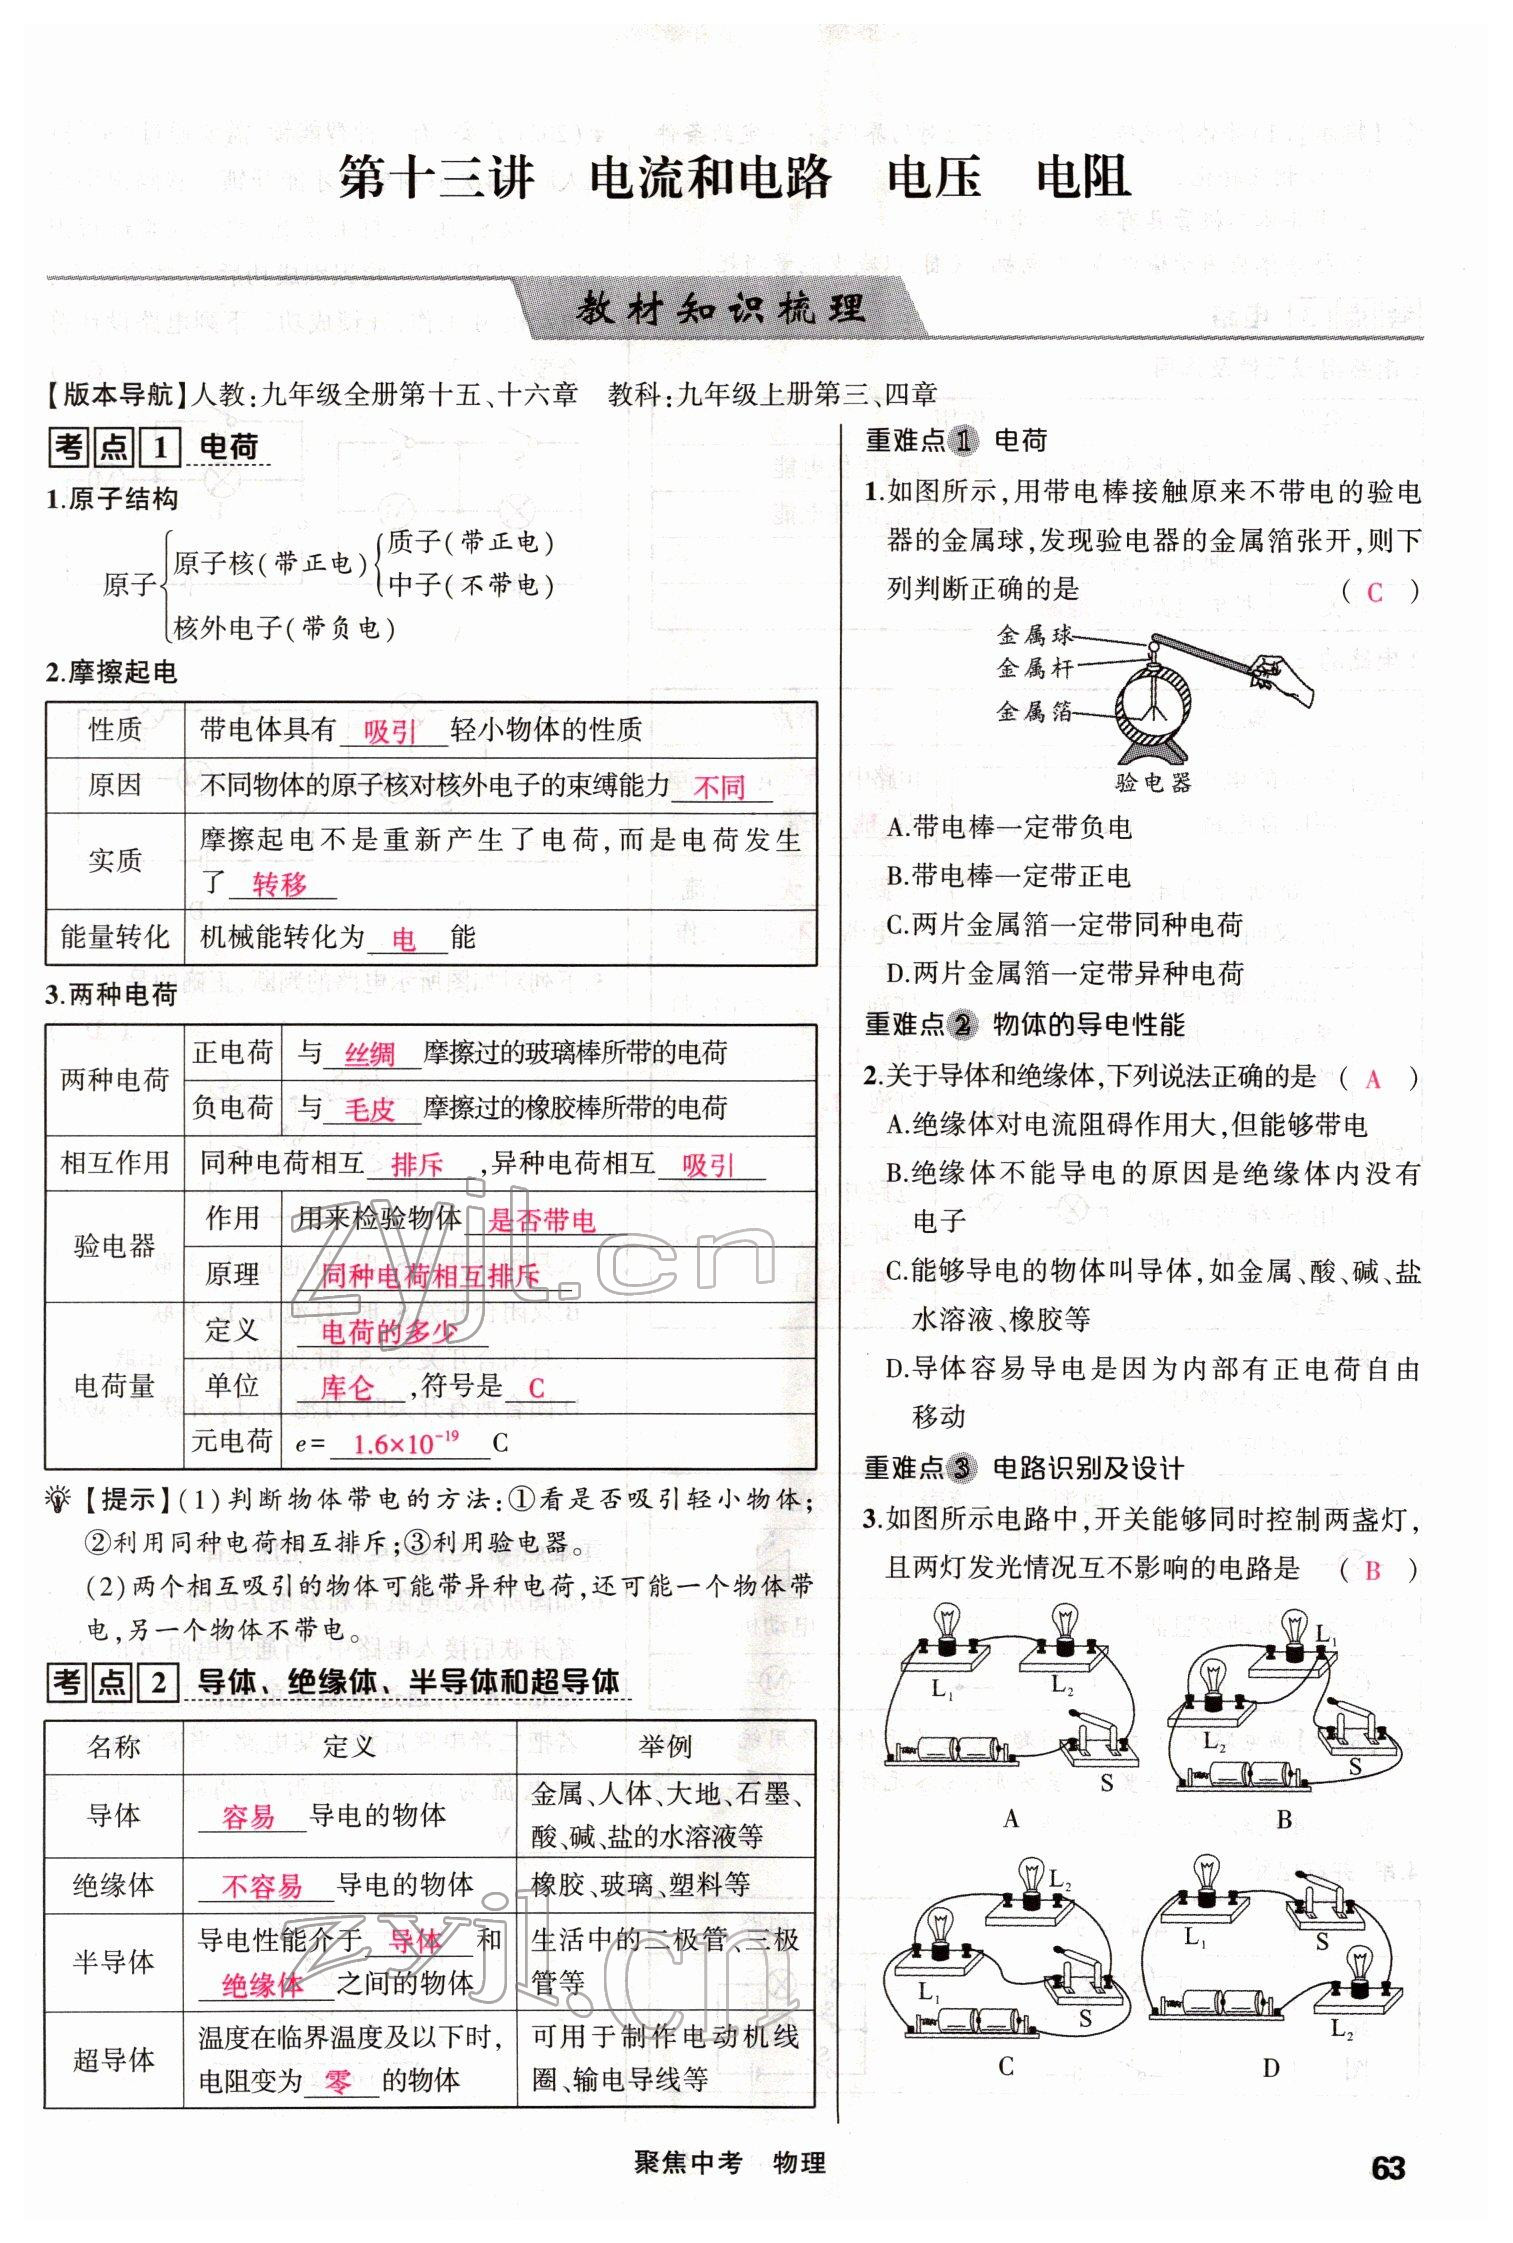 第十三讲 电流和电路 电压 电阻
教材知识梳理
【版本导航】人教:九年级全册第十五、十六章 教科:九年级上册第三、四章
考点1 电荷
1.原子结构
原子
原子核(带正电)
质子(带正电)
中子(不带电)
核外电子(带负电)
2.摩擦起电
性质 带电体具有 吸引 轻小物体的性质
原因 不同物体的原子核对核外电子的束缚能力 不同
实质 摩擦起电不是重新产生了电荷,而是电荷发生
了 转移
能量转化 机械能转化为 电 能
3.两种电荷
两种电荷
正电荷 与 丝绸 摩擦过的玻璃棒所带的电荷
负电荷 与 毛皮 摩擦过的橡胶棒所带的电荷
相互作用 同种电荷相互 排斥 ,异种电荷相互 吸引
验电器
作用 用来检验物体 是否带电
原理 同种电荷相互排斥
电荷量
定义 电荷的多少
单位 库仑 ,符号是 C
元电荷 e= 1.6×10⁻¹⁹ C
【提示】(1)判断物体带电的方法:①看是否吸引轻小物体;
②利用同种电荷相互排斥;③利用验电器。
(2)两个相互吸引的物体可能带异种电荷,还可能一个物体带
电,另一个物体不带电。
考点2 导体、绝缘体、半导体和超导体
名称 定义 举例
导体 容易 导电的物体 金属、人体、大地、石墨、
酸、碱、盐的水溶液等
绝缘体 不容易 导电的物体 橡胶、玻璃、塑料等
半导体 导电性能介于 导体 和
绝缘体 之间的物体
生活中的二极管、三极
管等
超导体 温度在临界温度及以下时,
电阻变为 零 的物体
可用于制作电动机线
圈、输电导线等
重难点1 电荷
1.如图所示,用带电棒接触原来不带电的验电
器的金属球,发现验电器的金属箔张开,则下
列判断正确的是 ( C )
金属球
金属杆
金属箔
验电器
A.带电棒一定带负电
B.带电棒一定带正电
C.两片金属箔一定带同种电荷
D.两片金属箔一定带异种电荷
重难点2 物体的导电性能
2.关于导体和绝缘体,下列说法正确的是 ( A )
A.绝缘体对电流阻碍作用大,但能够带电
B.绝缘体不能导电的原因是绝缘体内没有
电子
C.能够导电的物体叫导体,如金属、酸、碱、盐
水溶液、橡胶等
D.导体容易导电是因为内部有正电荷自由
移动
重难点3 电路识别及设计
3.如图所示电路中,开关能够同时控制两盏灯,
且两灯发光情况互不影响的电路是 ( B )
L₁ L₂ S
A
L₁ L₂ S
B
L₂ L₁ S
C
L₁ S L₂
D
zyjl.cn
zyjl.cn
聚焦中考 物理
63